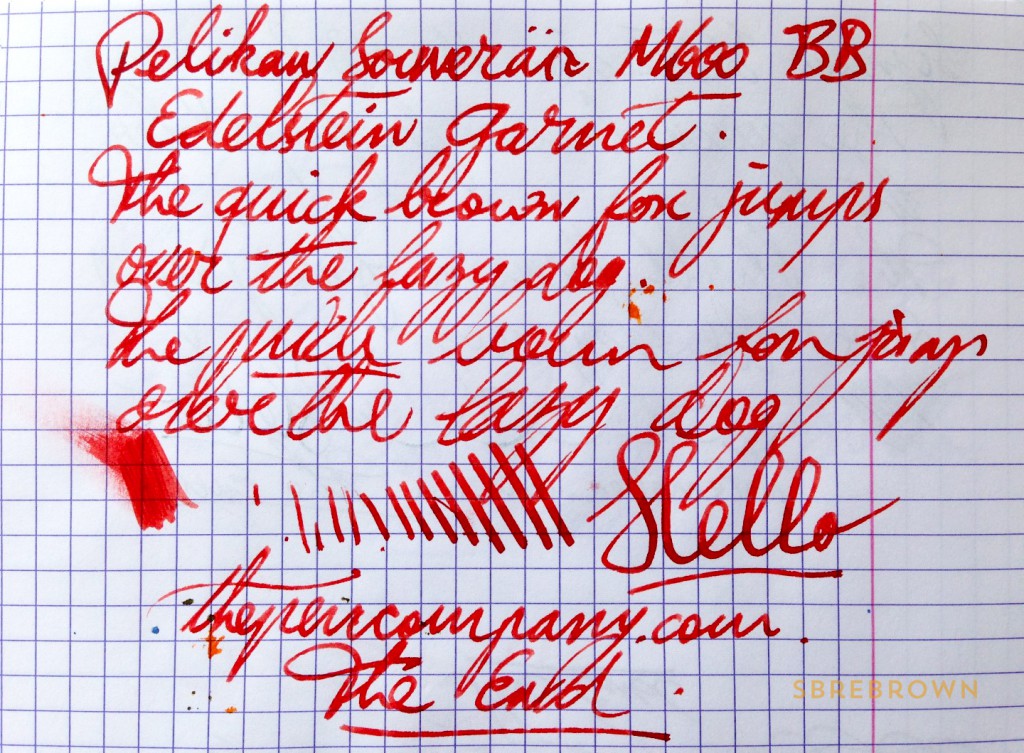 Pelikan Souverän M600 BB
Edelstein Garnet.
The quick brown fox jumps
over the lazy dog.
The quick brown fox jumps
over the lazy dog
Hello
thepencompany.com.
The End.
SBREBROWN